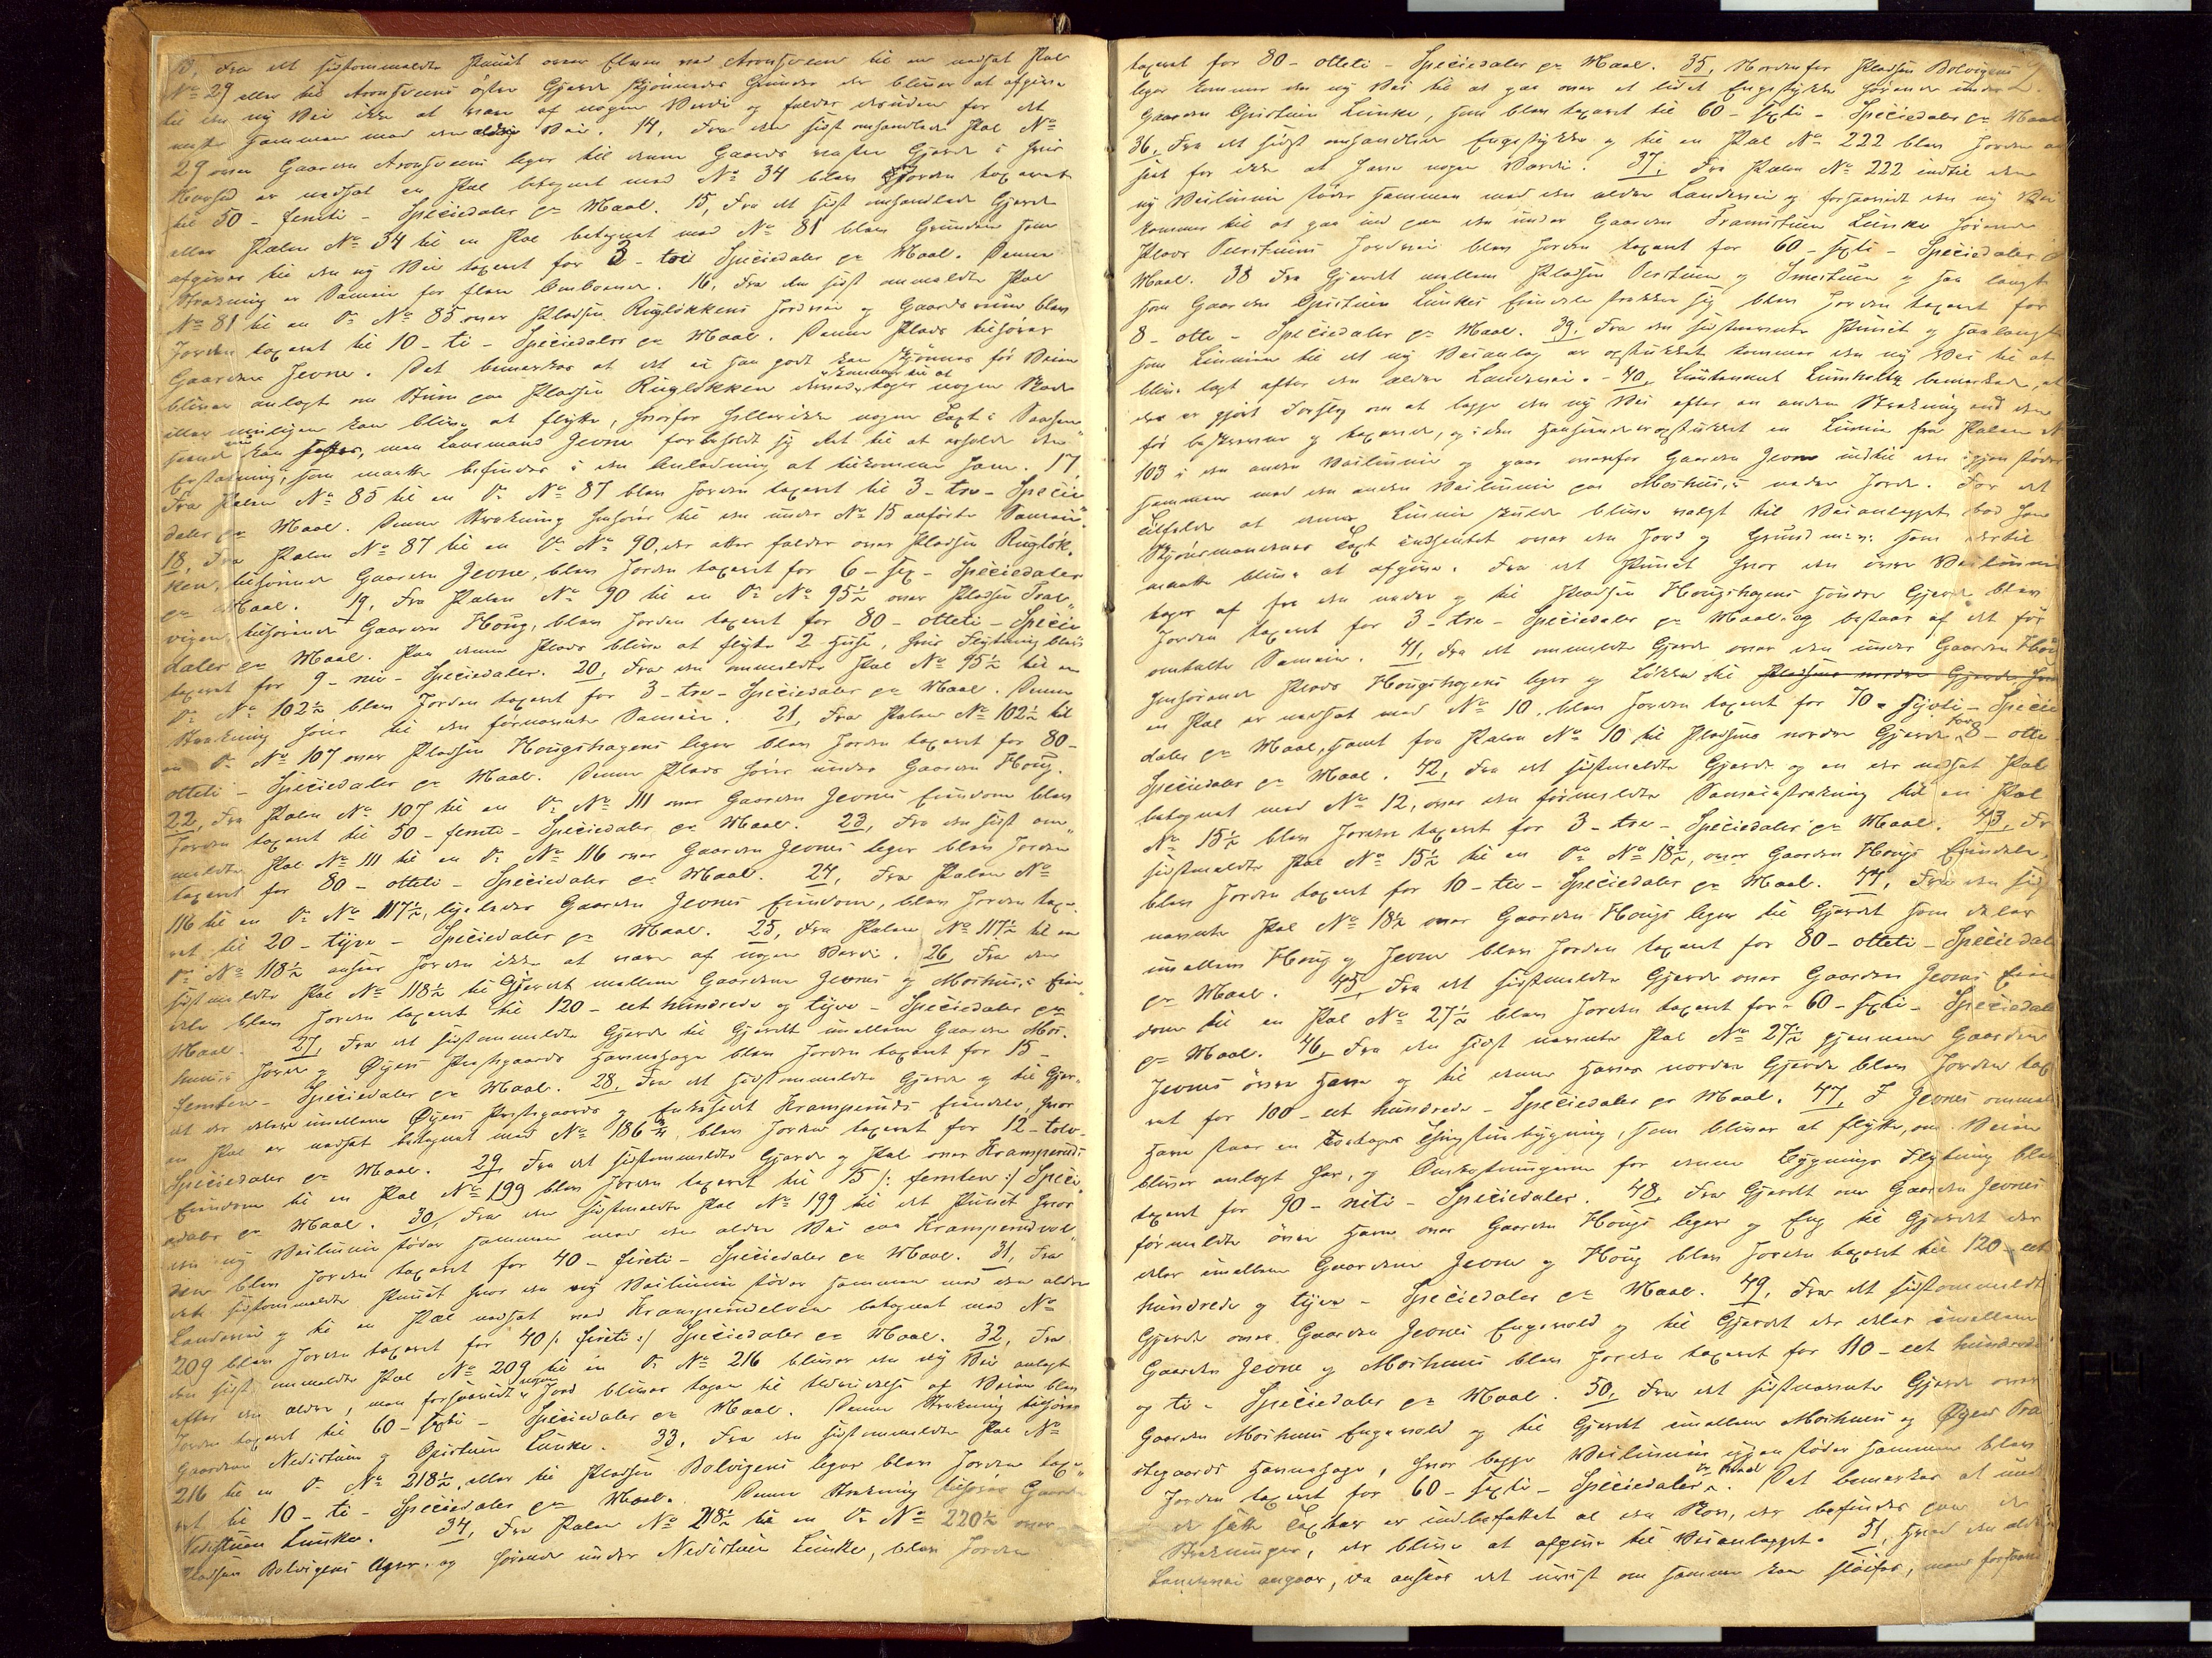 13, Fra det sidstommeldte Punct over Elven ved Aronsveen til en nedsat Pæl
No 29 eller til Aronsveens østre Gjerde skjønnedes Grunden der bliver at afgive
til den ny Vei ikke at være af nogen Værdi og falder desuden for det
meste sammen med den ældre Vei. 14, Fra den sidst omhandlede Pæl No
29 over Gaarden Aronsveens leger til denne Gaards vestre Gjerde i hvis
Nærhed er nedsat en Pæl betegnet med No 34 blev Jorden taxeret
til 50 - femti - Speciedaler pr Maal. 15, Fra det sidst omhandlede Gjerde
eller Pælen No 34 til en Pæl betegnet med No 81 blev Grunden som
afgives til den ny Vei taxeret for 3 - tre Speciedaler pr Maal. Denne
Strækning er Sameie for flere Opsiddere. 16, Fra den sidst ommeldte Pæl
No 81 til en Do No 85 over Pladsen Rugløkkens Jordvei og Gaardsrum blev
Jorden taxeret til 10 - ti - Speciedaler pr Maal. Denne Plads tilhører
Gaarden Jevne. Det bemærkes at det ei saa godt kan skjønnes før Veien
bliver anlagt om Huus paa Pladsen Rugløkken derved kommer til at tage nogen Skade
eller muligen kan blive at flytte, hvorfor hellerikke nogen Taxt i Saahen-
seende kan nu sættes, men Lensmand Jevne forbeholdt sig Ret til at erholde den
Erstatning, som maatte befindes i den Anledning at tilkomme ham. 17,
Fra Pælen No 85 til en Do No 87 blev Jorden taxeret til 3 - tre - Specie
daler pr Maal. Denne Strækning henhører til den under No 15 anførte Sameie.
18, Fra Pælen No 87 til en Do No 90, der atter falder over Pladsen Rugløk-
ken, tilhørende Gaarden Jevne, blev Jorden taxeret for 6 - sex - Speciedaler
pr Maal. 19, Fra Pælen No 90 til en Do No 95½ over Pladsen Tral-
vigen, tilhørende Gaarden Houg, blev Jorden taxeret for 80 - otteti - Specie
daler pr Maal. Paa denne Plads bliver at flytte 2 Huse, hvis Flytning blev
taxeret for 9 - ni - Speciedaler. 20, Fra den ommeldte Pæl No 95½ til en
Do No 102½ blev Jorden taxeret for 3 - tre - Speciedaler pr Maal. Denne
Strækning hører til den førnævnte Sameie. 21, Fra Pælen No 102½ til
en Do No 107 over Pladsen Hougshagens leger blev Jorden taxeret for 80 -
otteti - Speciedaler pr Maal. Denne Plads hører under Gaarden Houg.
22, Fra Pælen No 107 til en Do No 111 over Gaarden Jevnes Eiendom blev
Jorden taxeret til 50 - femti - Speciedaler pr Maal. 23, Fra den sidst om-
meldte Pæl No 111 til en Do No 116 over Gaarden Jevnes leger blev Jorden
taxeret for 80 - otteti - Speciedaler pr Maal. 24, Fra Pælen No
116 til en Do No 117½, ligeledes Gaarden Jevnes Eiendom, blev Jorden taxe-
ret til 20 - tyve - Speciedaler pr Maal. 25, Fra Pælen No 117½ til en
Do No 118½ ansees Jorden ikke at være af nogen Værdi. 26, Fra den
sidstmeldte Pæl No 118½ til Gjerdet mellem Gaardene Jevnes og Moshuus's Eien-
dele blev Jorden taxeret til 120 - eet hundrede og tyve - Speciedaler pr
Maal. 27, Fra det sidstommeldte Gjerde til Gjerdet imellem Gaarden Mos-
huus's Jorde og Øyers Præstegaards Havnehage blev Jorden taxeret for 15 -
femten - Speciedaler pr Maal. 28, Fra det sidstommeldte Gjerde og til Gjer-
det der deler imellem Øyers Præstegaards og Enkesædet Kramperuds Eiendele, hvor
en Pæl er nedsat betegnet med No 186¾, blev Jorden taxeret for 12 - tolv -
Speciedaler pr Maal. 29, Fra det sidstommeldte Gjerde og Pæl over Kramperuds
Eiendom til en Pæl No 199 blev Jorden taxeret til 15 /: femten :/ Speci-
edaler pr Maal. 30, Fra den sidstmeldte Pæl No 199 til det Punct hvor
den ny Veilinie støder sammen med den ældre Vei paa Kramperudvol-
den blev Jorden taxeret for 40 - fireti - Speciedaler pr Maal. 31, Fra
det sidstommeldte Punct hvor den ny Veilinie støder sammen med den ældre
Landevei og til en Pæl nedsat ved Kramperudelven betegnet med No
209 blev Jorden taxeret for 40 /: fireti :/ Speciedaler pr Maal. 32, Fra
den sidst ommeldte Pæl No 209 til en Do No 216 bliver den ny Vei anlagt
efter den ældre, men forsaavidt nogen Jord bliver tagen til Udvidelse af Veien blev
Jorden taxeret til 60 - sexti - Speciedaler pr Maal. Denne Strækning tilhører
Gaardene Nedistuen og Opistuen Lunke. 33, Fra den sidstommeldte Pæl No
216 til en Do No 218½, eller til Pladsen Bolvigens leger blev Jorden taxe-
ret til 10 - ti - Speciedaler pr Maal. Denne Strækning tilhører Gaarden
Nedistuen Lunke. 34, Fra Pælen No 218½ til en Do No 220½ over
Pladsen Bolvigens Ager og hørende under Nedistuen Lunke, blev Jorden
taxeret for 80 - otteti - Speciedaler pr Maal. 35, Nordenfor Pladsen Bolvigens
leger kommer den ny Vei til at gaa over et lidet Engestykke hørende under
Gaarden Opistuen Lunke, som blev taxeret til 60 - sexti - Speciedaler pr Maal
36, Fra det sidst omhandlede Engestykke og til en Pæl No 222 blev Jorden an
seet for ikke at have nogen Værdi. 37, Fra Pælen No 222 indtil den
ny Veilinie støder sammen med den ældre Landevei og forsaavidt den ny Vei
kommer til at gaa ind paa den under Gaarden Framistuen Lunke hørende
Plads Perstuens Jordvei blev Jorden taxeret for 60 - sexti - Speciedaler pr
Maal. 38 Fra Gjerdet mellem Pladsen Perstuen og Smestuen og saa langt
som Gaarden Opistuen Lunkes Eiendele strækker sig blev Jorden taxeret for
8 - otte - Speciedaler pr Maal. 39, Fra den sidstnævnte Punct og saalangt
som Linnien til det ny Veianlæg er opstukket kommer den ny Vei til at
blive lagt efter den ældre Landevei. - 40, Lieutenant Lumholtz bemærkede, at
der er gjort Forslag om at lægge den ny Vei efter en anden Strækning end den
før beskrevne og taxerede, og i den Henseende er opstukket en Linnie fra Pælen No
103 i den anden Veilinnie og gaar ovenfor Gaarden Jevne indtil den igjen støder
sammen med den anden Veilinnie paa Moshuus's nedre Jorde. For det
Tilfælde at denne Linnie skulde blive valgt til Veianlægget bad han
Skjønsmændenes Taxt indhentet over den Jord og Grund m:v: som dertil
maatte blive at afgive. Fra det Punct hvor den øvre Veilinnie
tager af fra den nedre og til Pladsen Hougshagens søndre Gjerde blev
Jorden taxeret for 3 - tre - Speciedaler pr Maal og bestaar af det før
omtalte Sameie. 41, Fra det ommeldte Gjerde over den under Gaarden Houg
henhørende Plads Hougshagens leger og Løkken til Pladsens nordre Gjerde hvor
en Pæl er nedsat med No 10, blev Jorden taxeret for 70 - sytti - Specie
daler pr Maal, samt fra Pælen No 10 til Pladsens nordre Gjerde for 8 - otte
Speciedaler pr Maal. 42, Fra det sidstmeldte Gjerde og en der nedsat Pæl
betegnet med No 12, over den førmeldte Sameiestrækning til en Pæl
No 15½ blev Jorden taxeret for 3 - tre - Speciedaler pr Maal. 43, Fr
sidstmeldte Pæl No 15½ til en Do No 18½, over Gaarden Hougs Eiendele,
blev Jorden taxeret for 10 - tie - Speciedaler pr Maal. 44, Fra den sidst
nævnte Pæl No 18½ over Gaarden Hougs leger til Gjerdet som deler
imellem Houg og Jevne blev Jorden taxeret for 80 - otteti - Speciedal
pr Maal. 45, Fra det sidstmeldte Gjerde over Gaarden Jevnes Eien
dom til en Pæl No 27½ blev Jorden taxeret for 60 - sexti - Speciedale
pr Maal. 46, Fra den sidst nævnte Pæl No 27½ gjennem Gaarden
Jevnes øvre Have og til denne Haves nordre Gjerde blev Jorden tax
eret for 100 - eet hundrede - Speciedaler pr Maal. 47, I Jevnes ommel
Have staar en toetages bygning, som bliver at flytte, om Veien
bliver anlagt her, og Omkostningerne for denne Bygnings Flytning blev
taxeret for 90 - niti - Speciedaler. 48, Fra Gjerdet om Gaarden Jevnes
førmeldte øvre Have over Gaarden Hougs leger og Eng til Gjerdet der
deler imellem Gaardene Jevne og Houg blev Jorden taxeret til 120 - eet
hundrede og tyve - Speciedaler pr Maal. 49, Fra det sidstommeldte
Gjerde over Gaarden Jevnes Engevold og til Gjerdet der deler imellem
Gaarden Jevne og Moshuus blev Jorden taxeret for 110 - eet hundrede
og ti - Speciedaler pr Maal. 50, Fra det sidstnævnte Gjerde over
Gaarden Moshuus Engevold og til Gjerdet imellem Moshuus og Øyers Præ
stegaards Havnehage, hvor begge Veilinnier igjen støder sammen blev
Jorden taxeret for 60 - sexti - Speciedaler pr Maal. Det bemærkes at und
er de satte Taxter er indbefattet al den Skov, der befindes paa de
Strækninger, der bliver at afgive til Veianlægget. 51, Hvad den ældre
Landevei angaar, da ansees det uvist om samme kan sløifes, men forsaavi